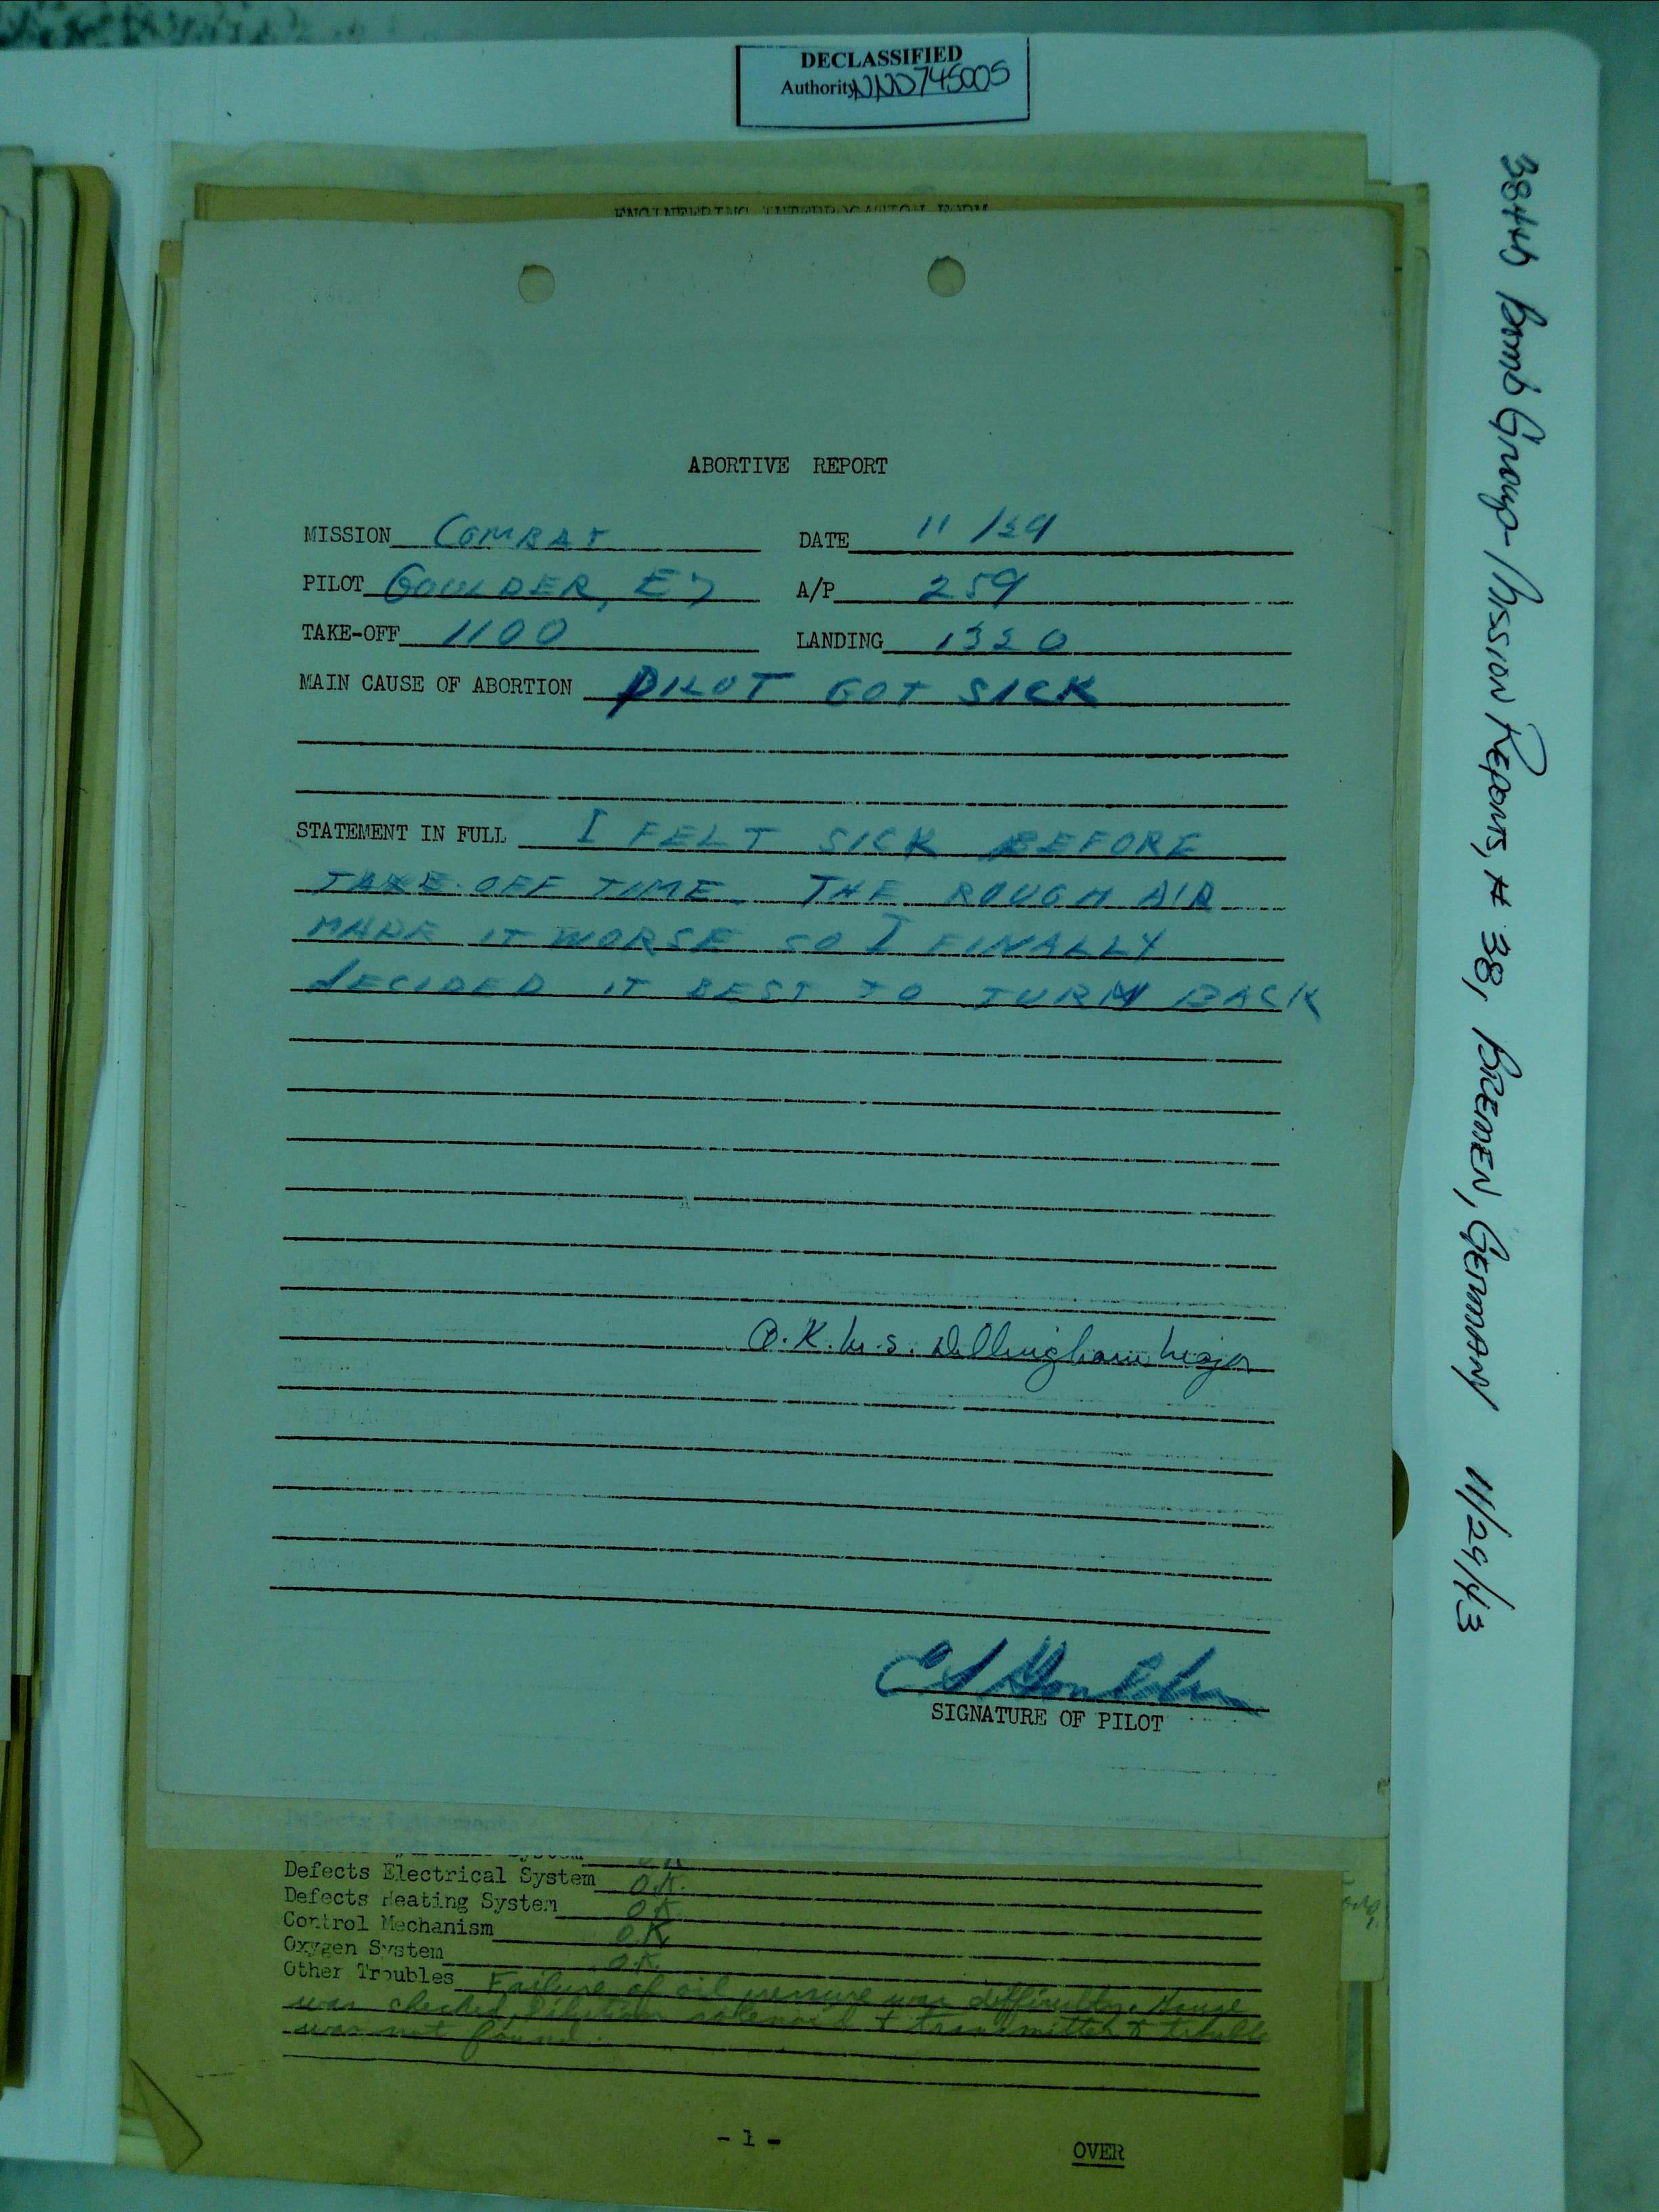 DECLASSIFIED
Authority NND745005
ENGINEERING INTERROGATION FORM
ABORTIVE REPORT
MISSION COMBAT DATE 11/29
PILOT GOULDER, EJ A/P 259
TAKE-OFF 1100 LANDING 1320
MAIN CAUSE OF ABORTION PILOT GOT SICK
STATEMENT IN FULL I FELT SICK BEFORE
TAKE-OFF TIME. THE ROUGH AIR
MADE IT WORSE SO I FINALLY
DECIDED IT BEST TO TURN BACK
O.K. W.S. Dillingham Major
SIGNATURE OF PILOT
Defects Electrical System O.K.
Defects Heating System O.K.
Control Mechanism O.K
Oxygen System O.K.
Other Troubles Failure of oil pressure was difficulty.
was checked, dilution solenoid & transmitter & trouble
was not found.
- 1 -
OVER
384th Bomb Group - Mission Reports, # 38, BREMEN, GERMANY 11/29/43